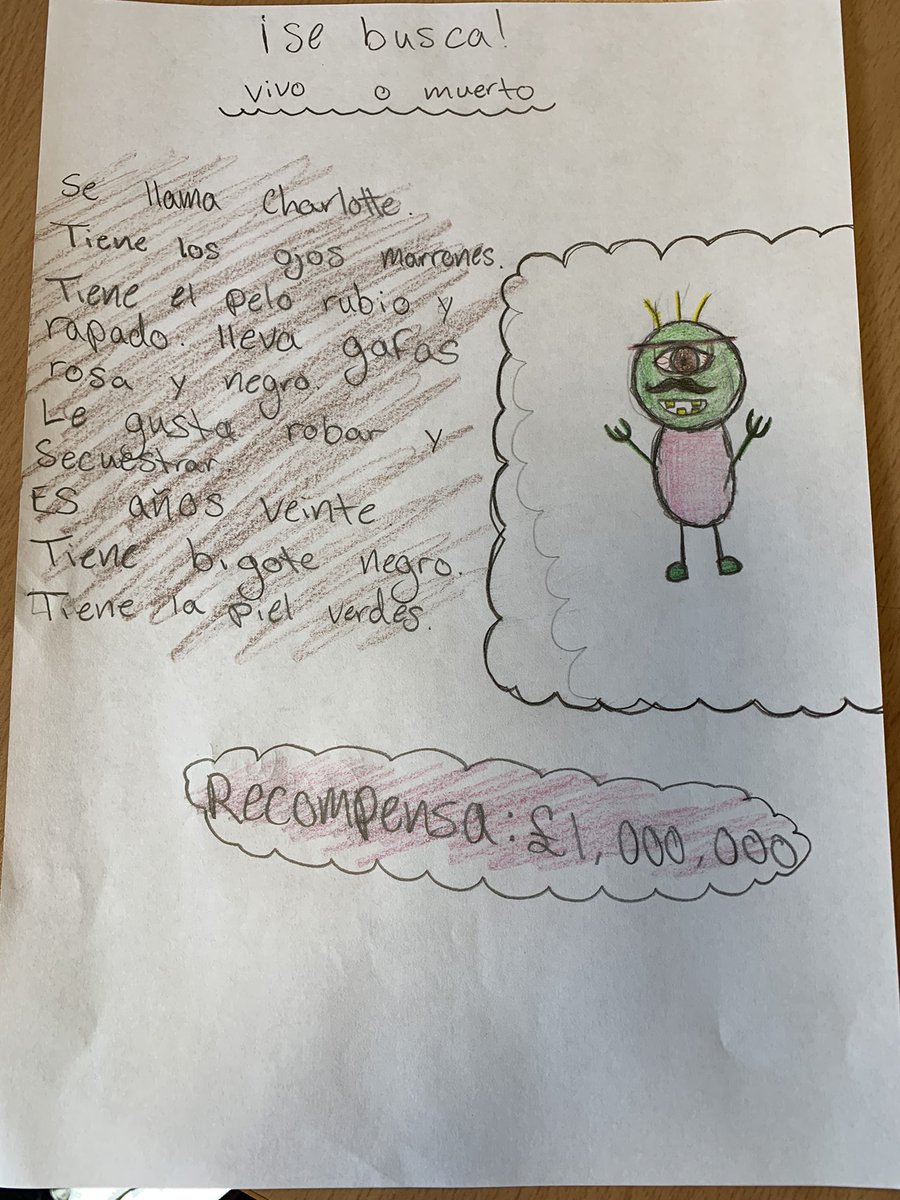 ¡se busca!
vivo o muerto
Se llama Charlotte.
Tiene los ojos marrones.
Tiene el pelo rubio y
rapado. lleva gafas
rosa y negro.
Le gusta robar y
Secuestrar.
ES años veinte.
Tiene bigote negro.
Tiene la piel verdes.
Recompensa: £1,000,000